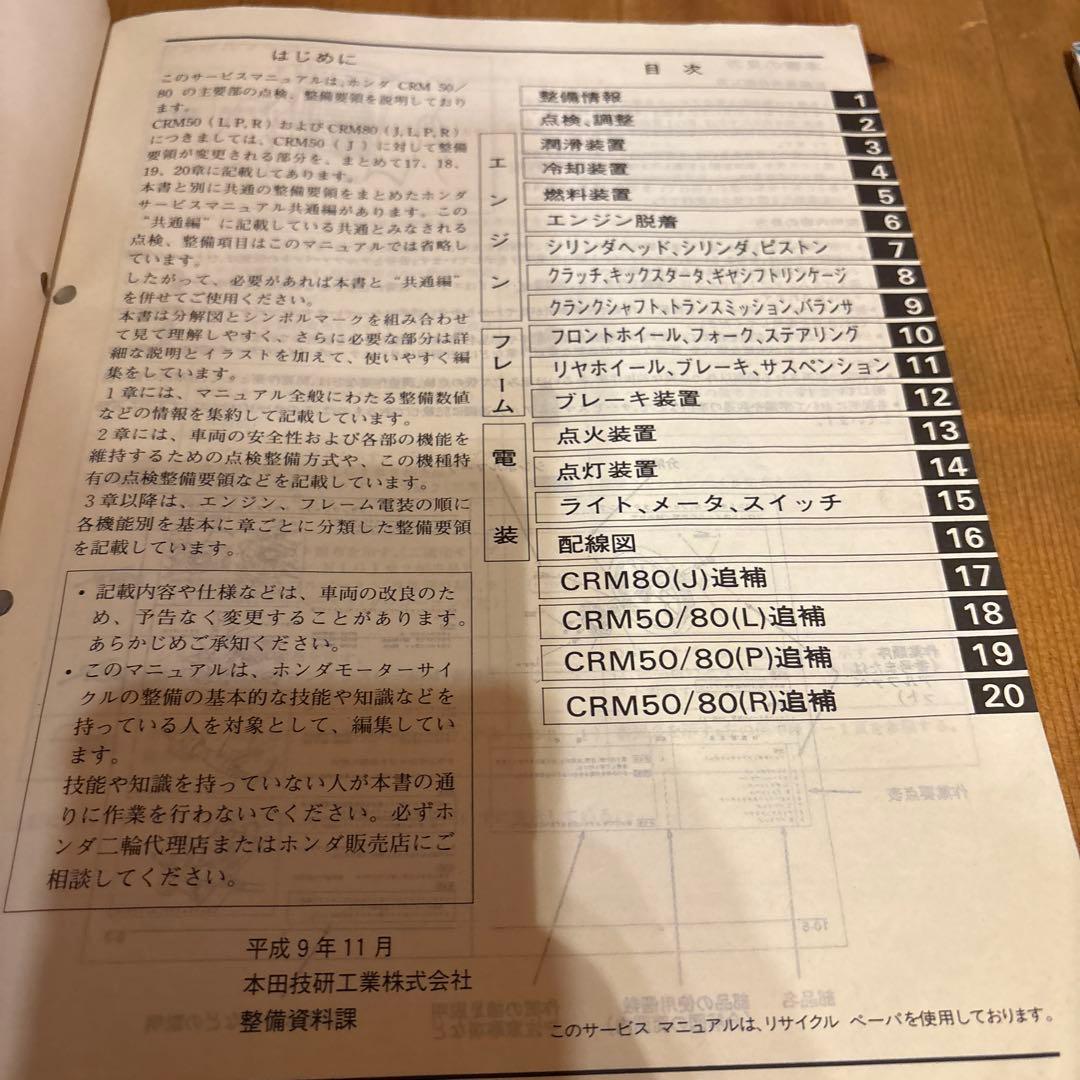 はじめに
このサービスマニュアルは、ホンダ CRM 50／
80 の主要部の点検、整備要領を説明しており
ます。
CRM50（L, P, R）およびCRM80（J, L, P, R）
につきましては、CRM50（J）に対して整備
要領が変更される部分を、まとめて17、18、
19、20章に記載してあります。
本書と別に共通の整備要領をまとめたホンダ
サービスマニュアル共通編があります。この
“共通編”に記載している共通とみなされる
点検、整備項目はこのマニュアルでは省略し
ています。
したがって、必要があれば本書と“共通編”
を併せてご使用ください。
本書は分解図とシンボルマークを組み合わせ
て見て理解しやすく、さらに必要な部分は詳
細な説明とイラストを加えて、使いやすく編
集をしています。
1章には、マニュアル全般にわたる整備数値
などの情報を集約して記載しています。
2章には、車両の安全性および各部の機能を
維持するための点検整備方式や、この機種特
有の点検整備要領などを記載しています。
3章以降は、エンジン、フレーム電装の順に
各機能別を基本に章ごとに分類した整備要領
を記載しています。
・記載内容や仕様などは、車両の改良のた
め、予告なく変更することがあります。
あらかじめご承知ください。
・このマニュアルは、ホンダモーターサイ
クルの整備の基本的な技能や知識などを
持っている人を対象として、編集してい
ます。
技能や知識を持っていない人が本書の通
りに作業を行わないでください。必ずホ
ンダ二輪代理店またはホンダ販売店にご
相談してください。
平成9年11月
本田技研工業株式会社
整備資料課
目 次
整備情報 1
点検、調整 2
エンジン
潤滑装置 3
冷却装置 4
燃料装置 5
エンジン脱着 6
シリンダヘッド、シリンダ、ピストン 7
クラッチ、キックスタータ、ギヤシフトリンケージ 8
クランクシャフト、トランスミッション、バランサ 9
フレーム
フロントホイール、フォーク、ステアリング 10
リヤホイール、ブレーキ、サスペンション 11
ブレーキ装置 12
電装
点火装置 13
点灯装置 14
ライト、メータ、スイッチ 15
配線図 16
CRM80(J)追補 17
CRM50/80(L)追補 18
CRM50/80(P)追補 19
CRM50/80(R)追補 20
このサービス マニュアルは、リサイクル ペーパを使用しております。